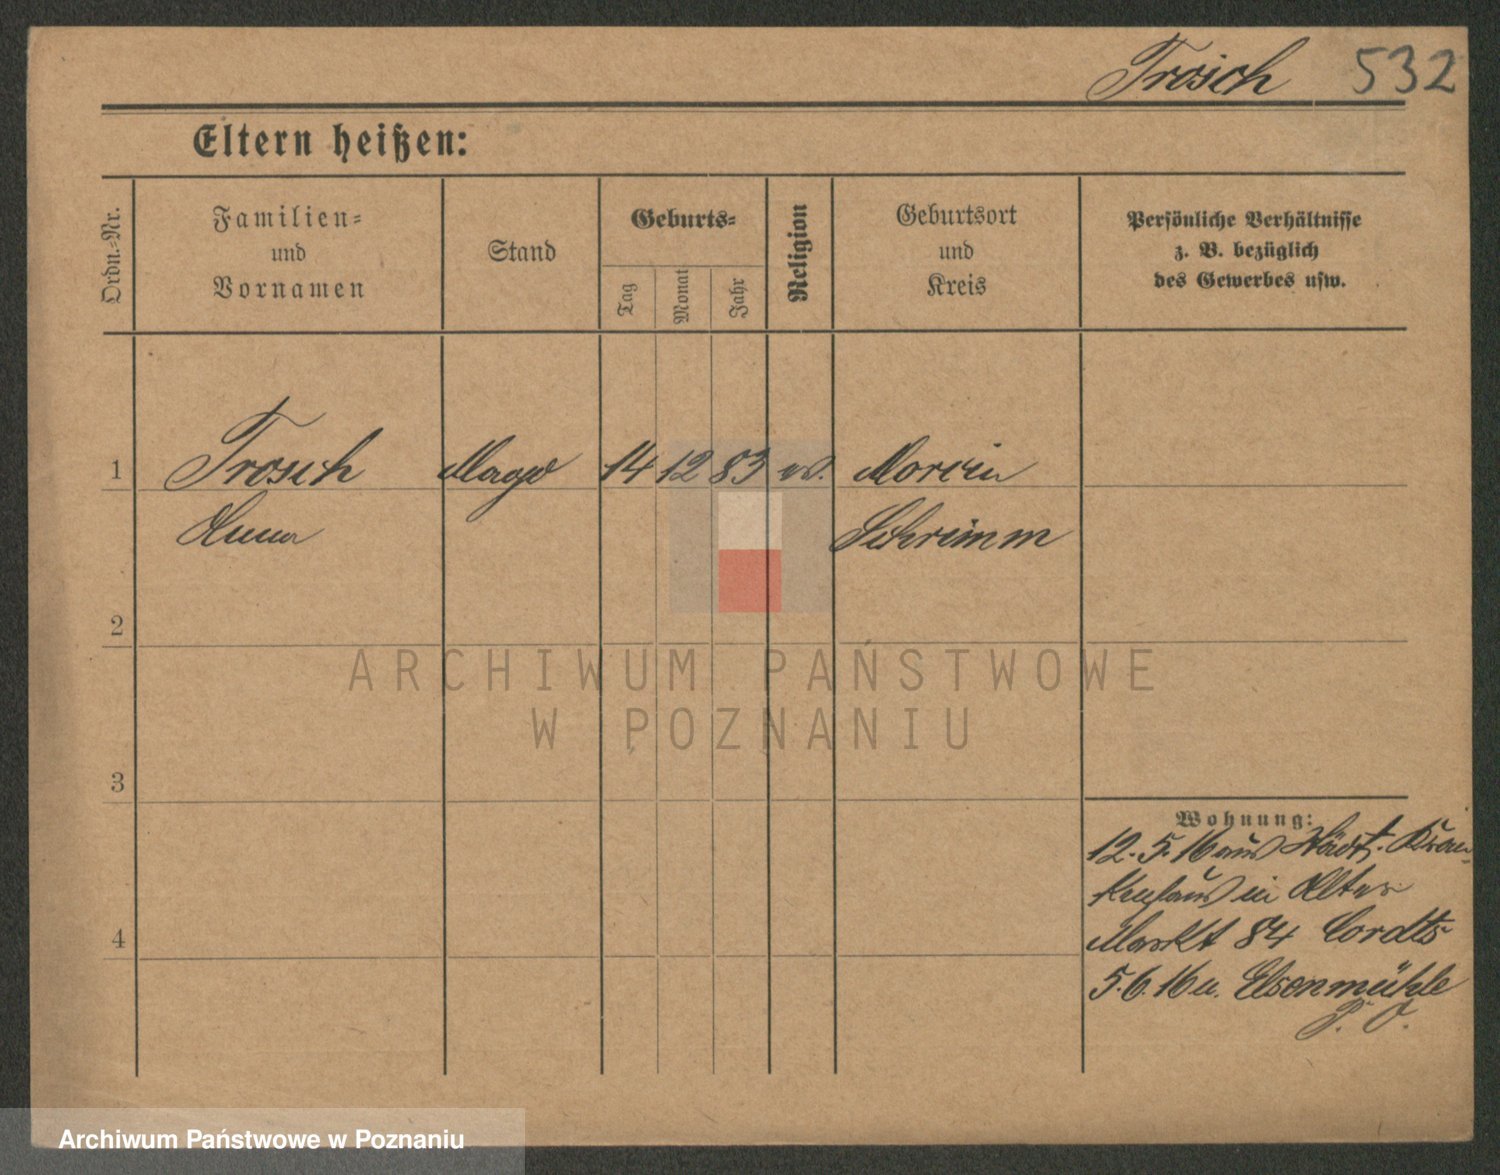 Trosch 532
Eltern heißen:
Ordn.-Nr.
Familien-
und
Vornamen
Stand
Geburts-
Tag
Monat
Jahr
Religion
Geburtsort
und
Kreis
Persönliche Verhältnisse
z. B. bezüglich
des Gewerbes usw.
1 Trosch Magd 14 12 83 ev. Morcin
Anna Schrimm
2
3
4
Wohnung:
12. 5. 16 aus städt. Kran-
kenhaus in Alter
Markt 84 Cordts
5. 6. 16 n. Elsenmühle
ARCHIWUM PAŃSTWOWE
W POZNANIU
Archiwum Państwowe w Poznaniu